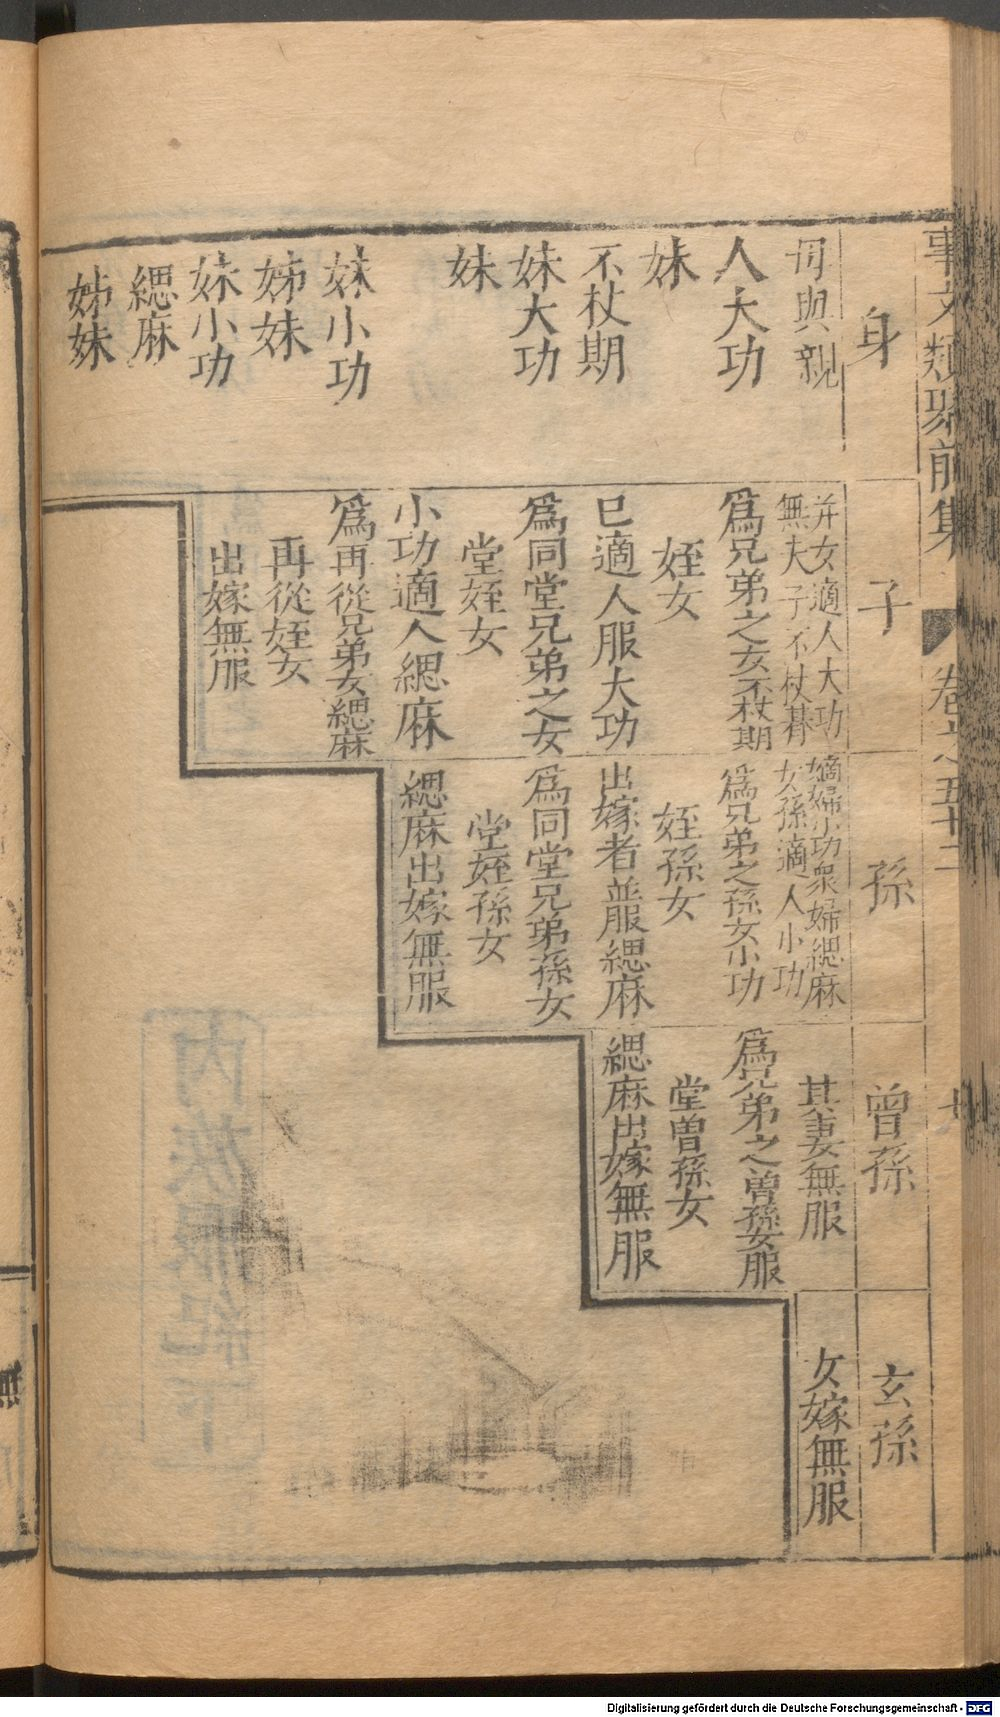 事文類聚前集 卷之五十二
身
子
孫
曾孫
玄孫
母與親
人大功
妹
不杖期
妹大功
妹
妹小功
姊妹
妹小功
緦麻
姊妹
并女適人大功
無夫子不杖朞
爲兄弟之女不杖期
姪女
已適人服大功
爲同堂兄弟之女
堂姪女
小功適人緦麻
爲再從兄弟女緦麻
再從姪女
出嫁無服
嫡婦小功衆婦緦麻
女孫適人小功
爲兄弟之孫女小功
姪孫女
出嫁者並服緦麻
爲同堂兄弟孫女
堂姪孫女
緦麻出嫁無服
其妻無服
爲兄弟之曽孫女服
堂曽孫女
緦麻出嫁無服
女嫁無服
Digitalisierung gefördert durch die Deutsche Forschungsgemeinschaft - DFG